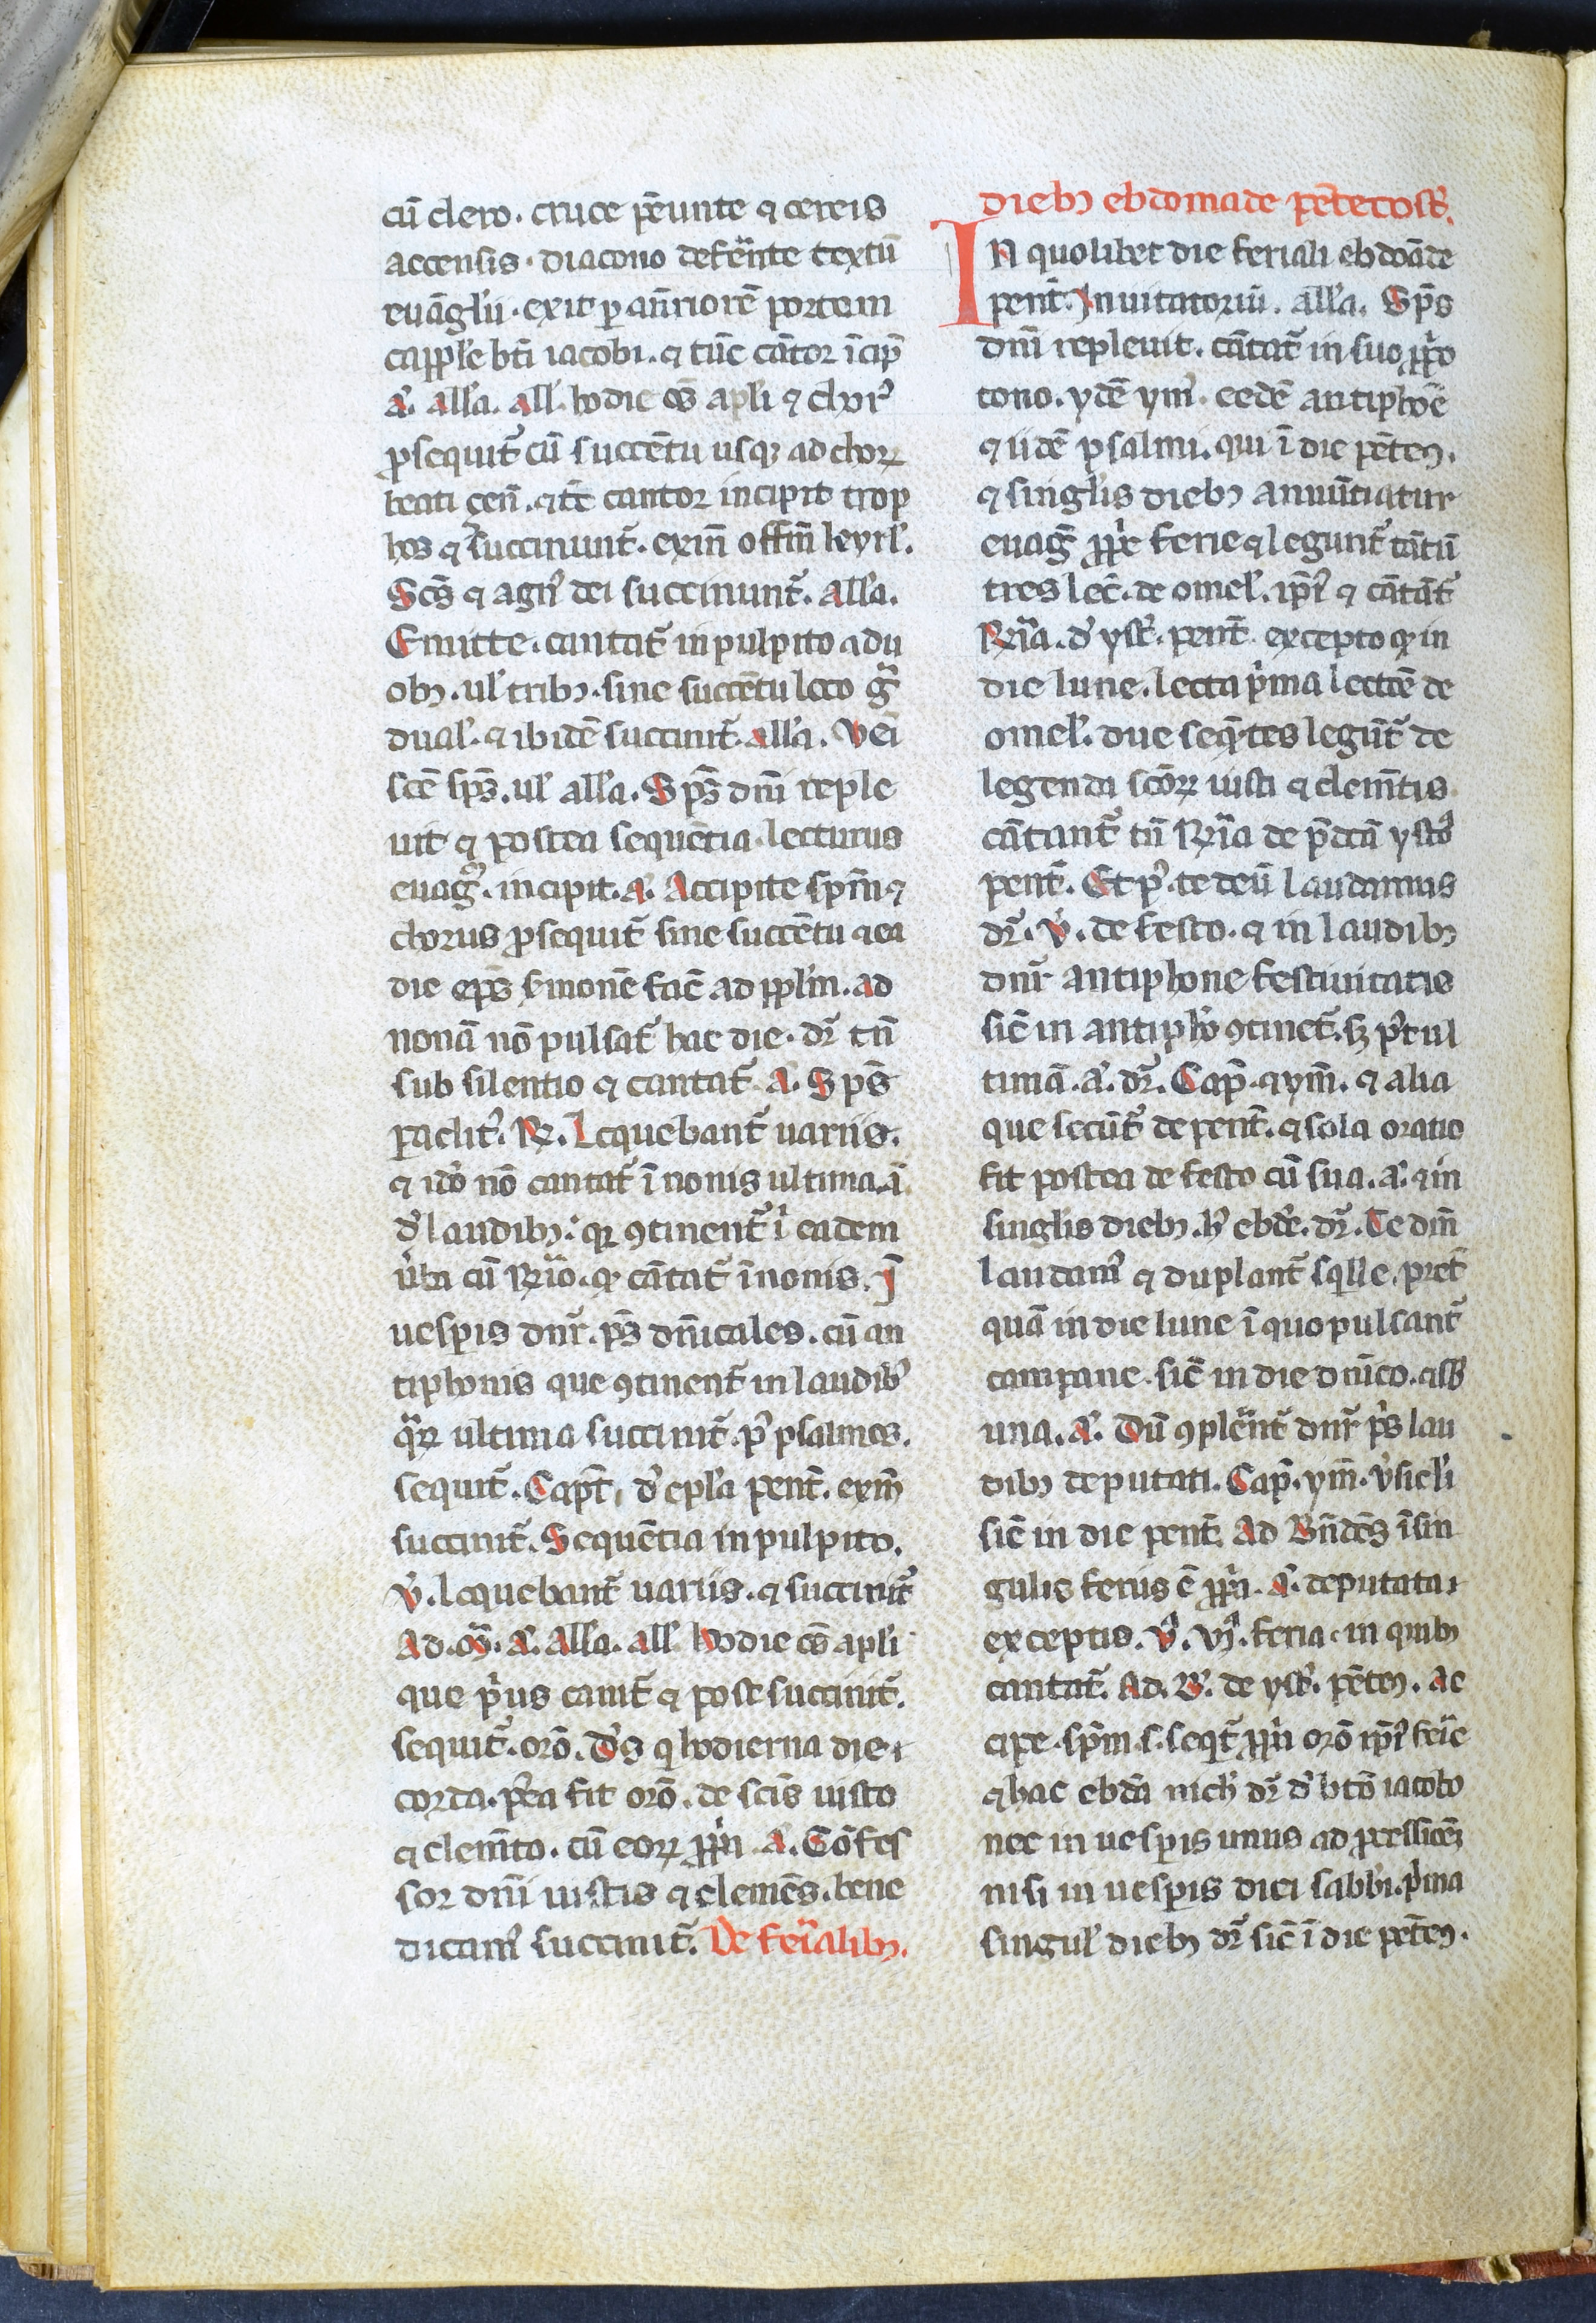 cū clero. cruce p̄eunte ⁊ cereis
accensis. diacono defer̄nte textū
euāglii. exit ꝑ ant̄riorē portem
capp̄le bt̄i iacobi. ⁊ tūc cātor īcip̄
a͛. all̓a. all̓. hodie oēs apl̓i ⁊ chorꝰ
ꝓsequit᷑ cū succētu usqꝫ ad choꝝ
beati cen̄. ⁊ tc̄ cantor incipit trop
hos ⁊ succinunt᷑. exin̄ offm̄ leyrl̓.
Scs̄ ⁊ agnꝰ dei succinunt᷑. all̓a.
Emitte. cantat᷑ in pulpito a du
obꝫ. ul̓ tribꝫ. sine succētu loco gͣ
dual̓. ⁊ ibidē succinit᷑. all̓a. Veī
sc̄e sp̄s. ul̓ all̓a. Sp̄s dn̄i reple
uit ⁊ postea sequētia. lecturus
euag̓. incipit. a͛. Accipite sp̄m ⁊
chorus ꝓsequit᷑ sine succētu ⁊ ea
die ep̄s s̓monē fac̄ ad pp̄lm̄. ad
nonā nō pulsat᷑ hac die. dr̄ tn̄
sub silentio ⁊ cantat᷑. A. Sp̄s
paclitꝰ. ℞. Loquebant᷑ uariis.
⁊ idō nō cantat᷑ ī nonis ultima. a͛.
d̓ laudibꝫ: qꝛ ꝯtinent᷑ ī eadem
u̓ba cū R̄rio. qꝫ cātat᷑ ī nonis. J̄
uesꝑis dn̄r. ps̄ dn̄icales. cū an
tiphonis que ꝯtinent᷑ in laudibꝰ
qͣꝝ ultima succinit᷑. pꝰ psalmos.
sequit᷑. Capt̄. d̓ epl̓a pent̄. exm̄
succinit᷑. Sequētia in pulpito.
v̓. loquebant᷑ uariis. ⁊ succinit᷑
Ad. mͣ. a͛. All̓a. all̓. hodie oēs apl̓i
que pⁱus canit᷑ ⁊ post succinit᷑.
sequit᷑. orō. D̄s q̄ hodierna die
corda. pꝰea fit orō. de scis̄ iusto
⁊ clemn̄to. cū eoꝝ ppⁱa. A. Cōfes
sor dn̄i iustus ⁊ clemēs. bene
dicamꝰ succinit᷑. De fer̄ialibꝫ.
diebꝫ ebdomade pēthecost̓.
IN quolibet die feriali ebdoāde
pent̄. Inuitatoriū. all̓a. Sp̄s
dn̄i repleuit. cātat᷑ in suo ppⁱo
tono. ydē ymꝰ. eedē antiphōe
⁊ iidē psalmi. qui ī die pētēꝫ.
⁊ singl̓is diebꝫ annūtiatur
euag̓ ppⁱe ferie ⁊ legunt᷑ tātū
tres lec̄. de omel̓. ip̄iꝰ ⁊ cātāt᷑
R̄ria. d̓ yst̓. pent̄. excepto qꝫ in
die lune. lecta pⁱma lectōe de
omel̓. due seqn̄tes legūt᷑ de
legenda scōꝝ iusti ⁊ clemn̄tis.
cātant᷑ tn̄ R̄ria de p̄dcā ystō
pent̄. Et pꝰ. te deū laudamus
dr̄. v̓. de festo. ⁊ in laudibꝫ
dnr̄ antiphone festiuitatis
sic̄ in antiphō ꝯtinet᷑. sꝫ p̄t ul
timā. a͛. dr̄. Cap̄. ⁊ ym̄. ⁊ alia
que secūt᷑ de pent̄. ⁊ sola oratio
fit postea de festo cū sua. a͛. ⁊ in
singl̓is diebꝫ. hꝰ ebdē. dr̄. Te dm̄
laudamꝰ ⁊ duplant᷑ sqlle. pret̄
quā in die lune ī quo pulsant᷑
campane. sic̄ in die dn̄ico. ⁊ sb̓
una. a͛. Dū ꝯplēnt᷑ dnr̄ ps̄ lau
dibꝫ deputati. Cap̄. ym̄. v̓sicl̓i
sic̄ in die pent̄. Ad Bn̄dēs ī sin
gulis feriis ē ppⁱa. a͛. deputata
exceptis. v̓. vj̓. feria in quibꝫ
cantat᷑. Ad. B̓. de yst̓. pētēꝫ. Ac
cipe. sp̄m. s. seqt᷑ ppⁱa orō ip̄iꝰ feīe
⁊ hac ebdā nich̓ dr̄ d̓ btō iacobo
nec in uesꝑis unus ad ꝓcessionēꝫ
nisi in uesꝑis diei sabb̓i. pⁱma
singul̓ diebꝫ dr̄ sic̄ ī die pētēꝫ.